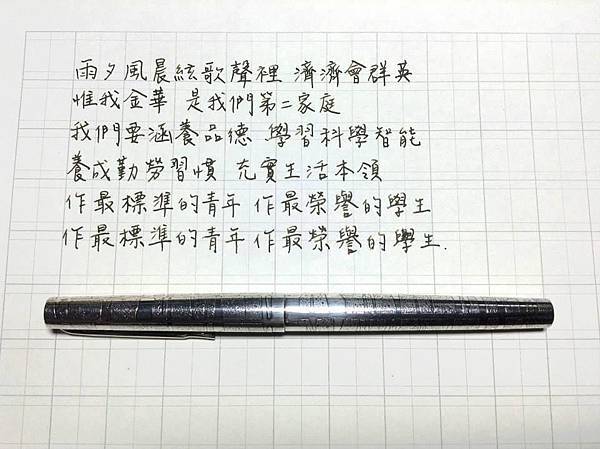 雨夕風晨絃歌聲裡 濟濟會群英
惟我金華 是我們第二家庭
我們要涵養品德 學習科學智能
養成勤勞習慣 充實生活本領
作最標準的青年 作最榮譽的學生
作最標準的青年 作最榮譽的學生.